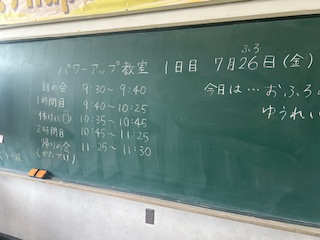 パワーアップ教室 1日目 7月26日(金)
ふろ
今日は…おふろ
ゆうれい
朝の会 9:30~9:40
1時間目 9:40~10:25
休けい 10:35~10:45
2時間目 10:45~11:25
帰りの会 11:25~11:30